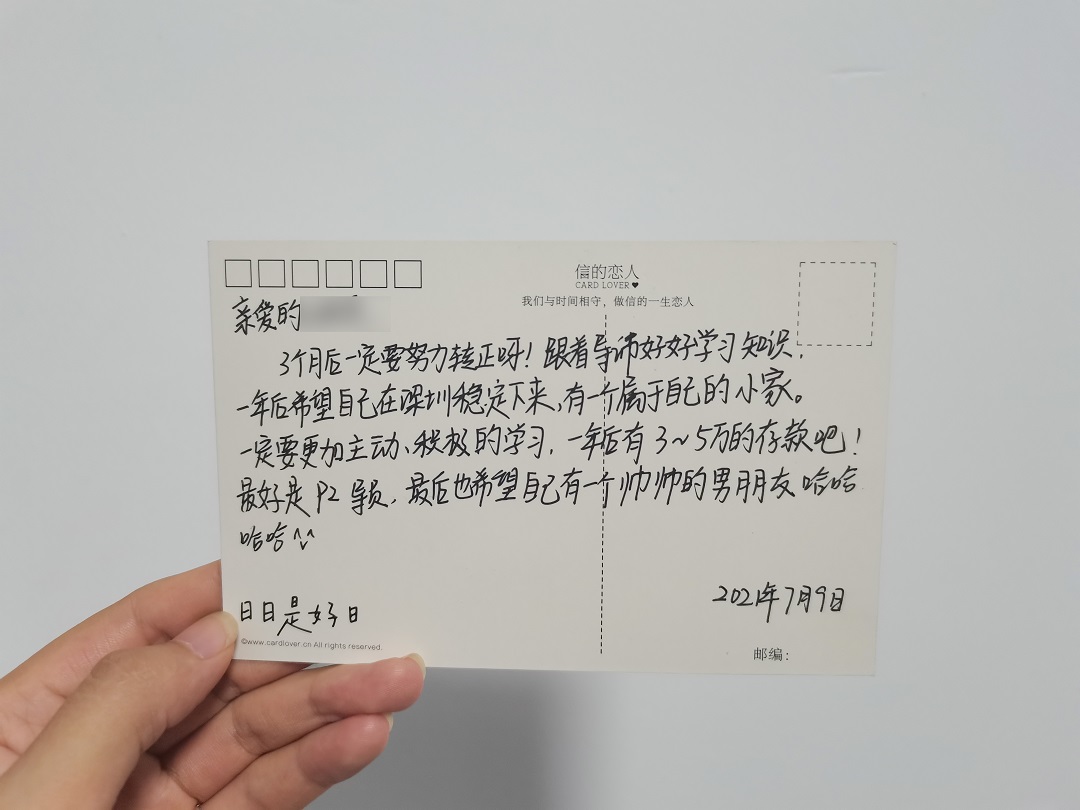 信的恋人
CARD LOVER♥
我们与时间相守，做信的一生恋人
亲爱的
3个月后一定要努力转正呀！跟着导师好好学习知识，
一年后希望自己在深圳稳定下来，有一个属于自己的小家。
一定要更加主动、积极的学习，一年后有3~5万的存款吧！
最好是P2导员，最后也希望自己有一个帅帅的男朋友哈哈
哈哈^^
2021年7月9日
日日是好日
©www.cardlover.cn All rights reserved.
邮编：